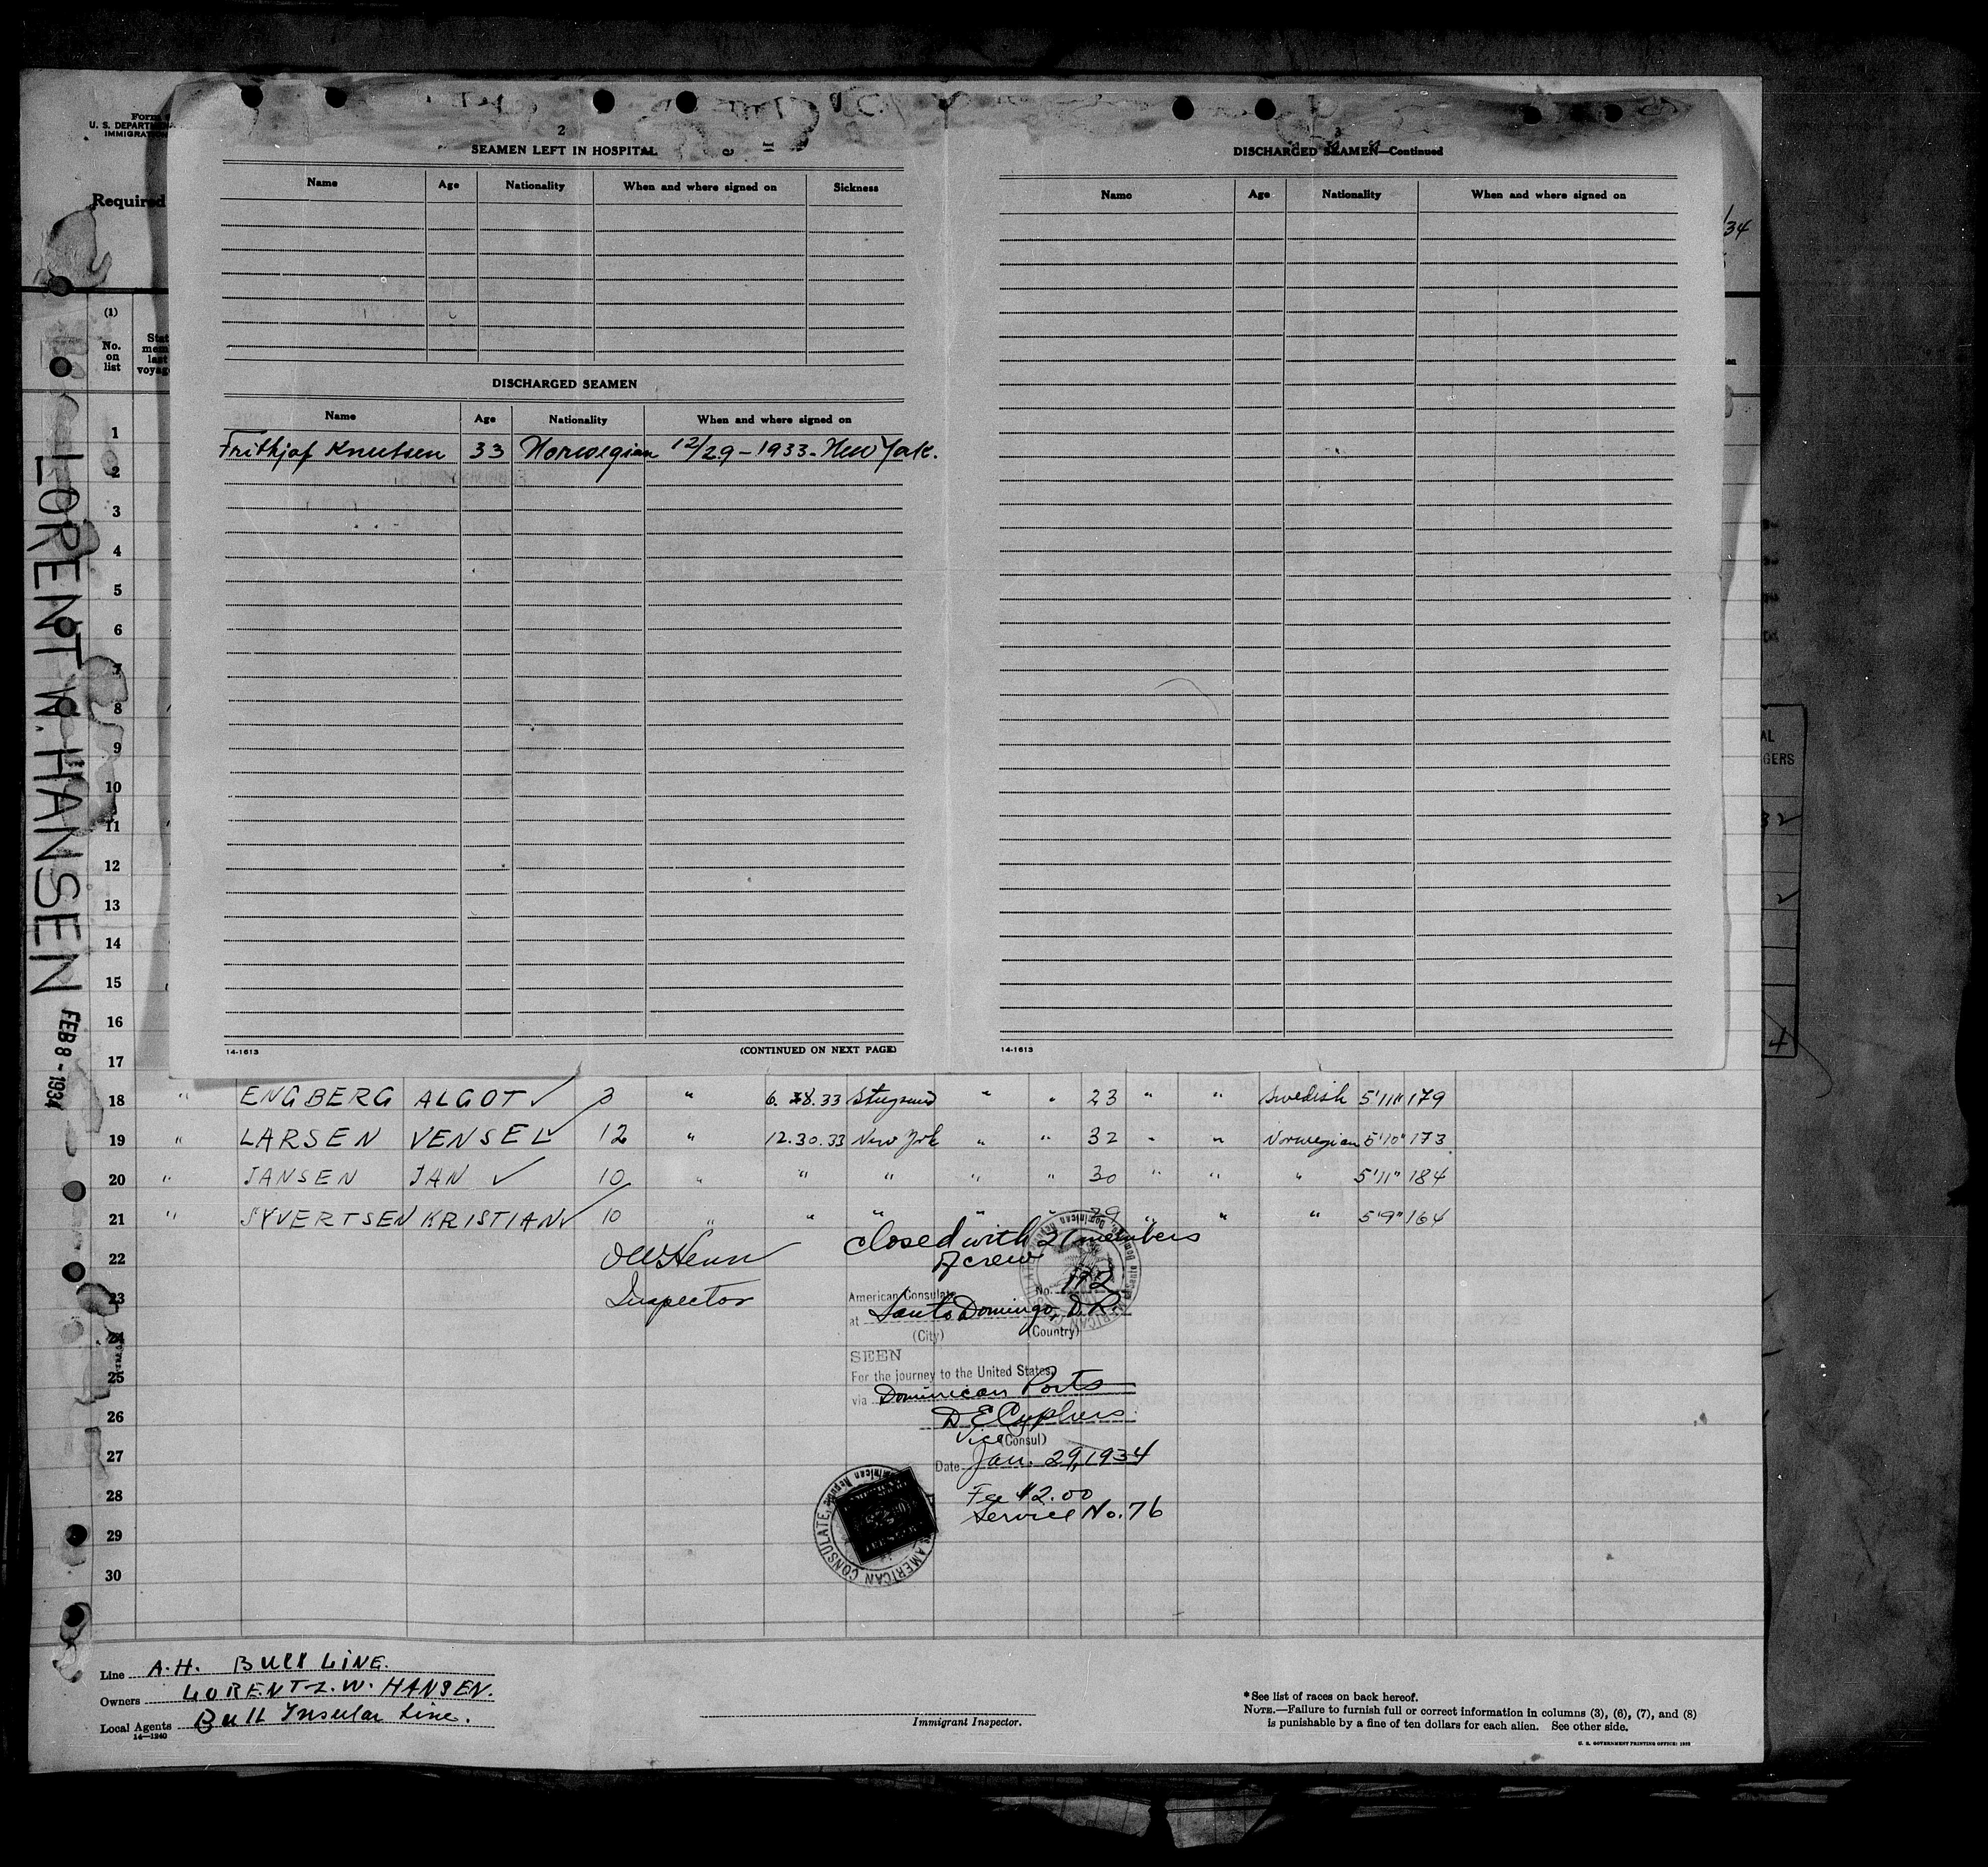 Form
U. S. DEPARTM
IMMIGRATION
Required
(1)
No.
on
list
LORENT W. HANSEN
FEB 8 - 1934
2
SEAMEN LEFT IN HOSPITAL
Name Age Nationality When and where signed on Sickness
DISCHARGED SEAMEN
Name Age Nationality When and where signed on
Frithjof Knutsen 33 Norwegian 12/29-1933-New York.
14-1613 (CONTINUED ON NEXT PAGE)
DISCHARGED SEAMEN—Continued
Name Age Nationality When and where signed on
14-1613
/34
AL
GERS
1
2
3
4
5
6
7
8
9
10
11
12
13
14
15
16
17
18 " ENGBERG ALGOT ✓ 3 " 6. 28.33 " " 23 " " Swedish 5'11" 179
19 " LARSEN VENSEL ✓ 12 " 12.30.33 New York " " 32 " " Norwegian 5'10" 173
20 " JANSEN JAN ✓ 10 " " " " " 30 " " " 5'11" 184
21 " SYVERTSEN KRISTIAN ✓ 10 " " " " " 29 " " " 5'9" 164
22
23
24
25
26
27
28
29
30
Inspector
Closed with 21 members
of crew
American Consulate No. 172
at Santo Domingo, D.R.
(City) (Country)
SEEN
For the journey to the United States
via Dominican Ports
D E Cyphers
Vice (Consul)
Date Jan. 29, 1934
Fee $2.00
Service No. 76
AMERICAN CONSULATE,
Line A.H. BULL LINE.
Owners LORENTZ. W. HANSEN.
Local Agents Bull Insular Line.
14—1240
Immigrant Inspector.
* See list of races on back hereof.
NOTE.—Failure to furnish full or correct information in columns (3), (6), (7), and (8)
is punishable by a fine of ten dollars for each alien. See other side.
U. S. GOVERNMENT PRINTING OFFICE: 1932